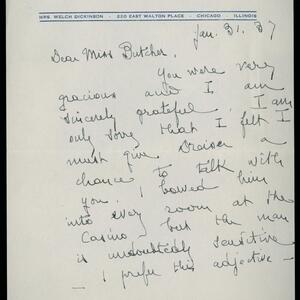 MRS. WELCH DICKINSON · 220 EAST WALTON PLACE · CHICAGO · ILLINOIS
Jan. 31. 37
Dear Miss Butcher,
You were very
gracious and I am
sincerely grateful. I am
only sorry that I felt I
must give Dreiser a
chance to talk with
you. I bowed him
into every room at the
Casino but the man
is undoubtedly sensitive
I prefer this adjective —